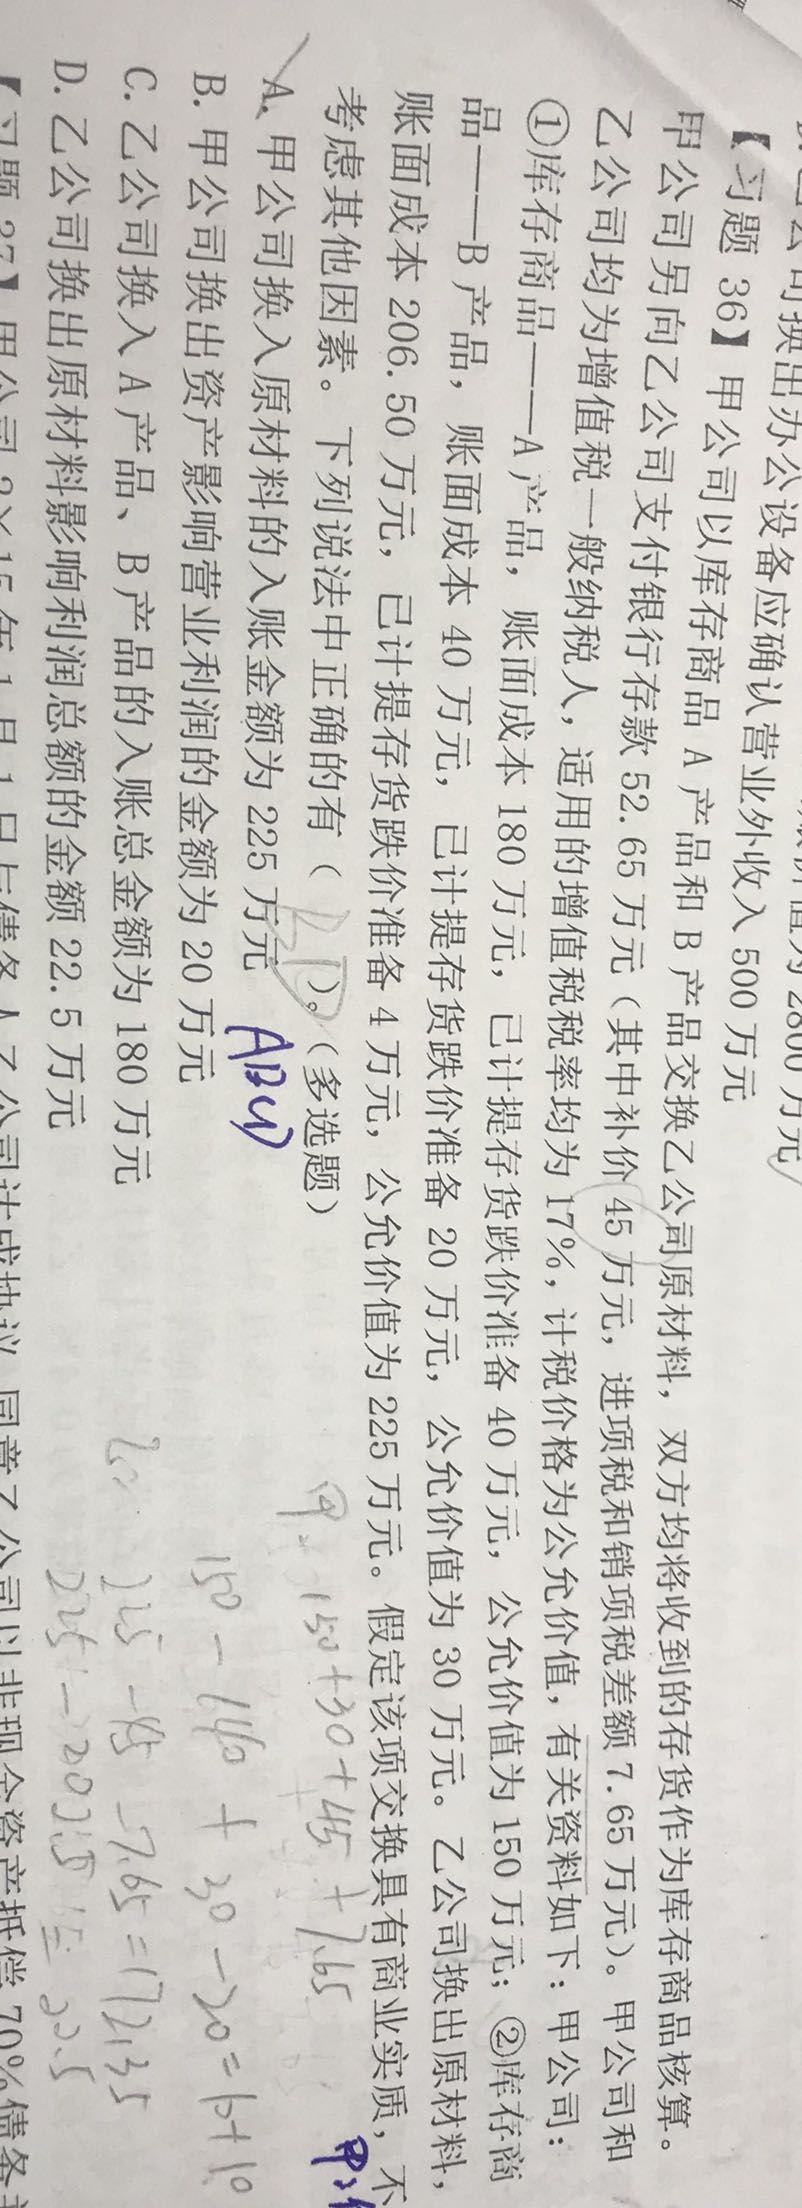 公司换出办公设备应确认营业外收入 500 万元
【习题 36】甲公司以库存商品 A 产品和 B 产品交换乙公司原材料，双方均将收到的存货作为库存商品核算。
甲公司另向乙公司支付银行存款 52.65 万元（其中补价 45 万元，进项税和销项税差额 7.65 万元）。甲公司和
乙公司均为增值税一般纳税人，适用的增值税税率均为 17%，计税价格为公允价值，有关资料如下：甲公司：
①库存商品——A 产品，账面成本 180 万元，已计提存货跌价准备 40 万元，公允价值为 150 万元；②库存商
品——B 产品，账面成本 40 万元，已计提存货跌价准备 20 万元，公允价值为 30 万元。乙公司换出原材料，
账面成本 206.50 万元，已计提存货跌价准备 4 万元，公允价值为 225 万元。假定该项交换具有商业实质，不
考虑其他因素。下列说法中正确的有（ ）。（多选题）
A、甲公司换入原材料的入账金额为 225 万元
B. 甲公司换出资产影响营业利润的金额为 20 万元
C. 乙公司换入 A 产品、B 产品的入账总金额为 180 万元
D. 乙公司换出原材料影响利润总额的金额 22.5 万元
甲: 150+30+45+7.65
150-140+30-20=10+10
225-45-7.65=172.35
225-202.5=22.5